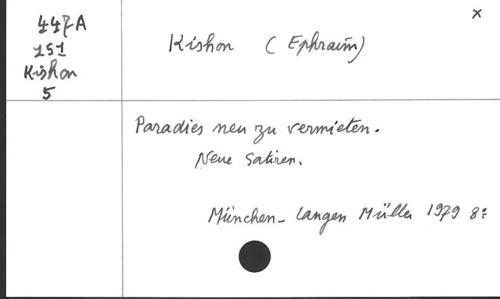 447A
151
Kishon
5
Kishon (Ephraim)
x
Paradies neu zu vermieten.
Neue Satiren.
München - Langen Müller 1979 8: